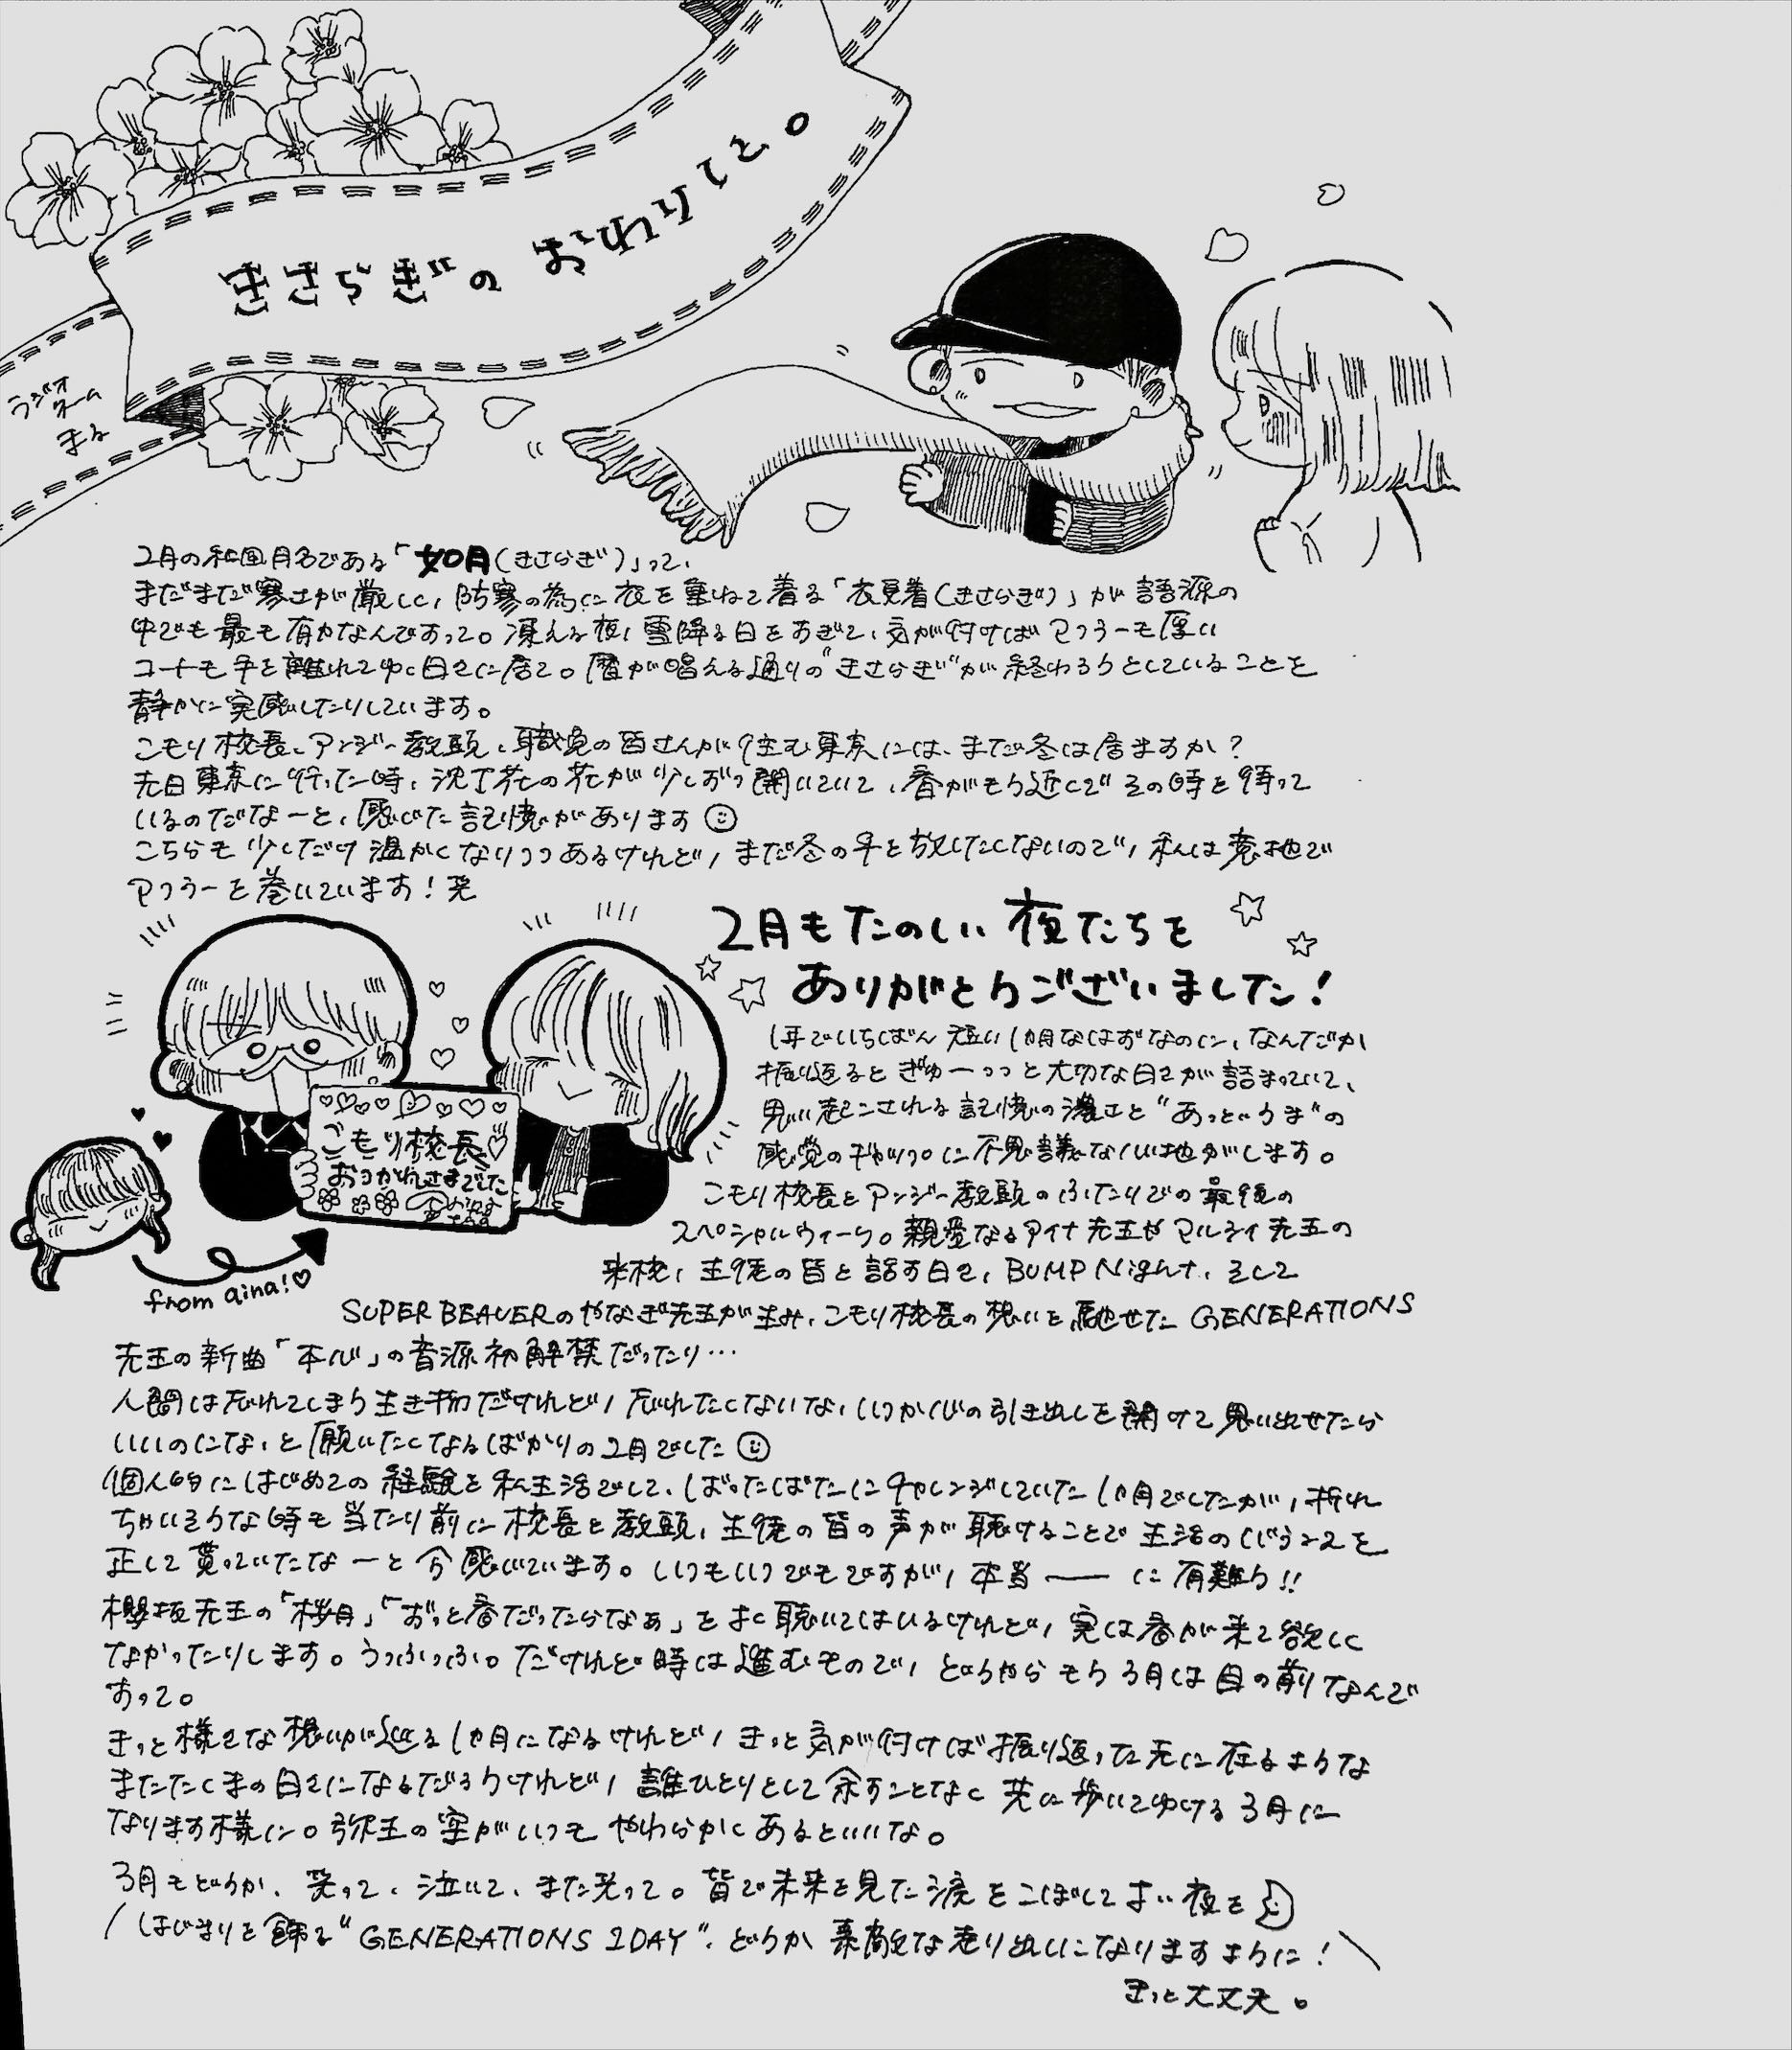 きさらぎの おわりこと。
ラジオ
ネーム
まる
2月の和風月名である「如月(きさらぎ)」って、
まだまだ寒さが厳しく、防寒の為に衣を重ねて着る「衣更着(きさらぎ)」が語源の
中でも最も有力なんですって。凍える夜、雪降る日をすぎて、気が付けばマフラーも厚い
コートも手を離れてゆく日々に居て。暦が唱える通りの"きさらぎ"が終わろうとしていることを
静かに実感したりしています。
こもり校長、アンジー教頭、職員の皆さんが住む東京には、まだ冬は居ますか?
先日東京に行った時、沈丁花の花が少しずつ開いていて、春がもう近くでその時を待って
いるのだなーと、感じた記憶があります☺
こちらも少しだけ温かくなりつつあるけれど、まだ冬の手を放したくないので、私は意地で
マフラーを巻いています!笑
2月もたのしい夜たちを
ありがとうございました!
1年でいちばん短い1ヵ月なはずなのに、なんだか
振り返るとぎゅーっっと大切な日々が詰まっていて、
思い起こされる記憶の濃さと"あっというま"の
感覚のギャップに不思議な心地がします。
こもり校長♡
おつかれさまでした
from aina!♡
こもり校長とアンジー教頭のふたりでの最後の
スペシャルウィーク。親愛なるアイナ先生やマルシィ先生の
来校、生徒の皆と話す日々、BUMP Night、そして
SUPER BEAVERのやなぎ先生が生み、こもり校長の想いを馳せた GENERATIONS
先生の新曲「本心」の音源初解禁だったり…
人間は忘れてしまう生き物だけれど、忘れたくないな、いつか心の引き出しを開けて思い出せたら
いいのにな、と願いたくなるばかりの2月でした☺
個人的にはじめての経験を私生活でして、ばったばたにチャレンジしていた1ヵ月でしたが、折れ
ちゃいそうな時も当たり前に校長と教頭、生徒の皆の声が聴けることで生活のバランスを
正して貰っていたなーと今感じています。いつもいつでもですが、本当──に有難う!!
櫻坂先生の「桜月」「ずっと春だったらなぁ」をよく聴いてはいるけれど、実は春が来て欲しく
なかったりします。うっふっふ。だけれど時は進むもので、どうやらもう3月は目の前なんで
すって。
きっと様々な想いが巡る1ヵ月になるけれど、きっと気が付けば振り返った先に在るような
またたくまの日々になるだろうけれど、誰ひとりとして余すことなく共に歩いてゆける3月に
なります様に。弥生の空がいつもやわらかくあるといいな。
3月もどうか、笑って、泣いて、また笑って。皆で未来を見た涙をこぼしてよい夜を
はじまりを飾る"GENERATIONS 2DAY"、どうか素敵な走り出しになりますように!
きっと大丈夫。